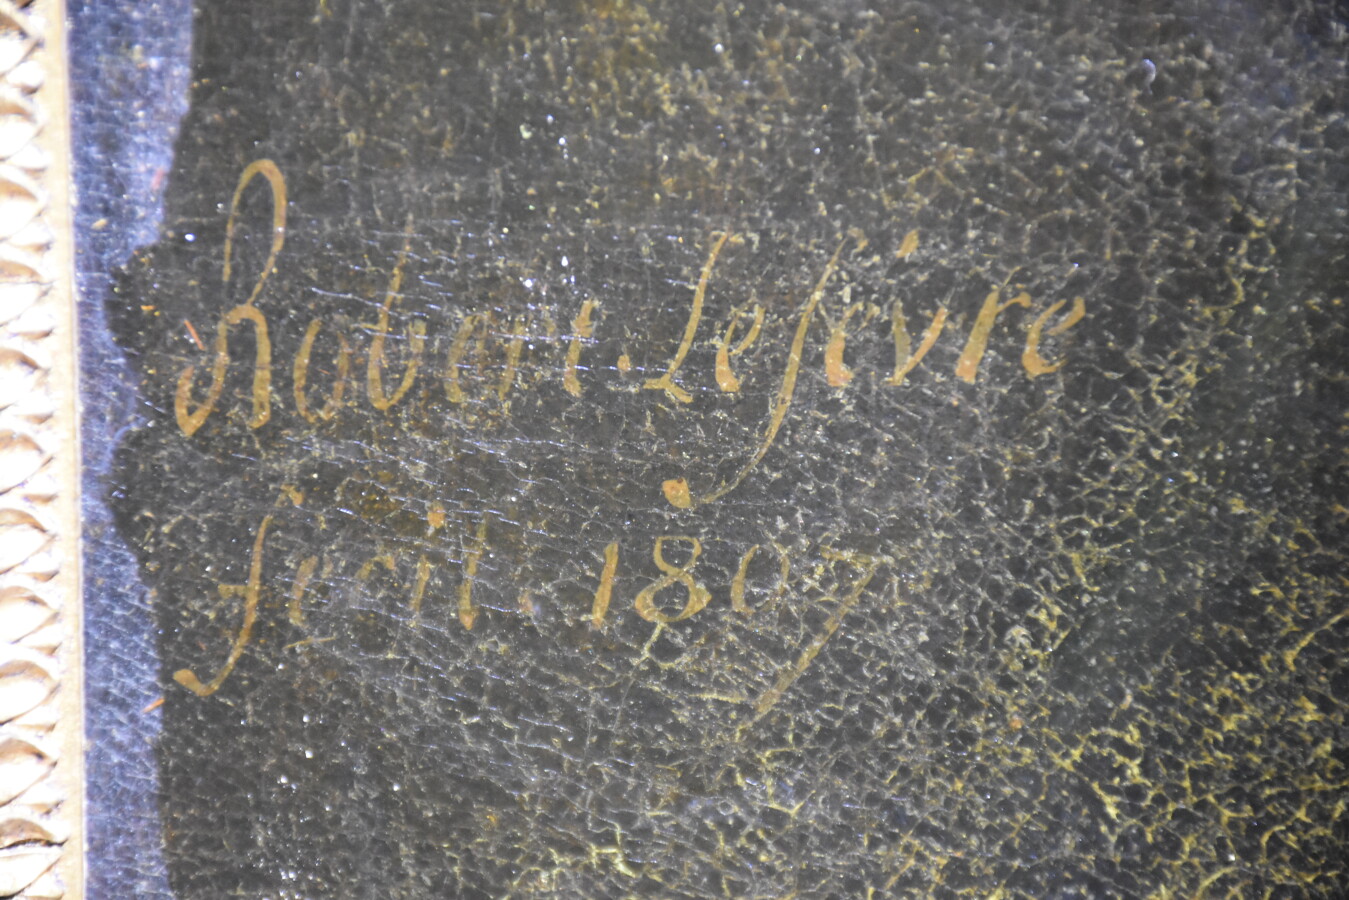 Robert. Lefèvre
fecit. 1807